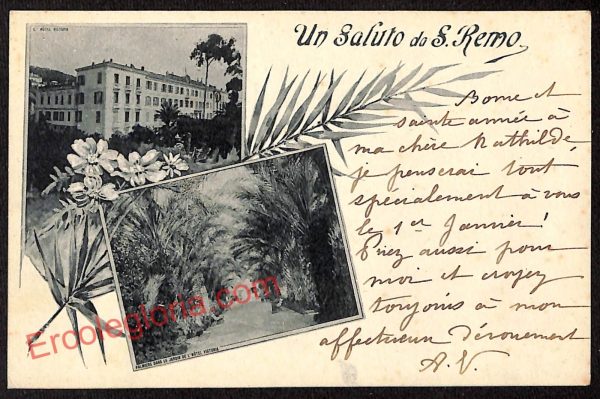 L' HÔTEL VICTORIA
Un Saluto da S. Remo.
Bonne et
sainte année à
ma chère Mathilde,
je penserai tout
spécialement à vous
le 1er Janvier!
Priez aussi pour
moi et croyez
toujours à mon
affectueux dévouement
A.V.
PALMIERS DANS LE JARDIN DE L'HÔTEL VICTORIA
Ercolegloria.com